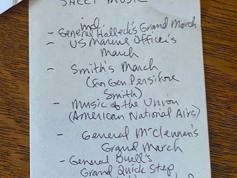 SHEET MUSIC
incl.
- General Halleck's Grand March
- US Marine Officer's
March
- Smith's March
(Gen Persifore
Smith)
- Music of the Union
(American National Airs)
- General McClennan's
Grand March
- General Buell's
Grand Quick Step